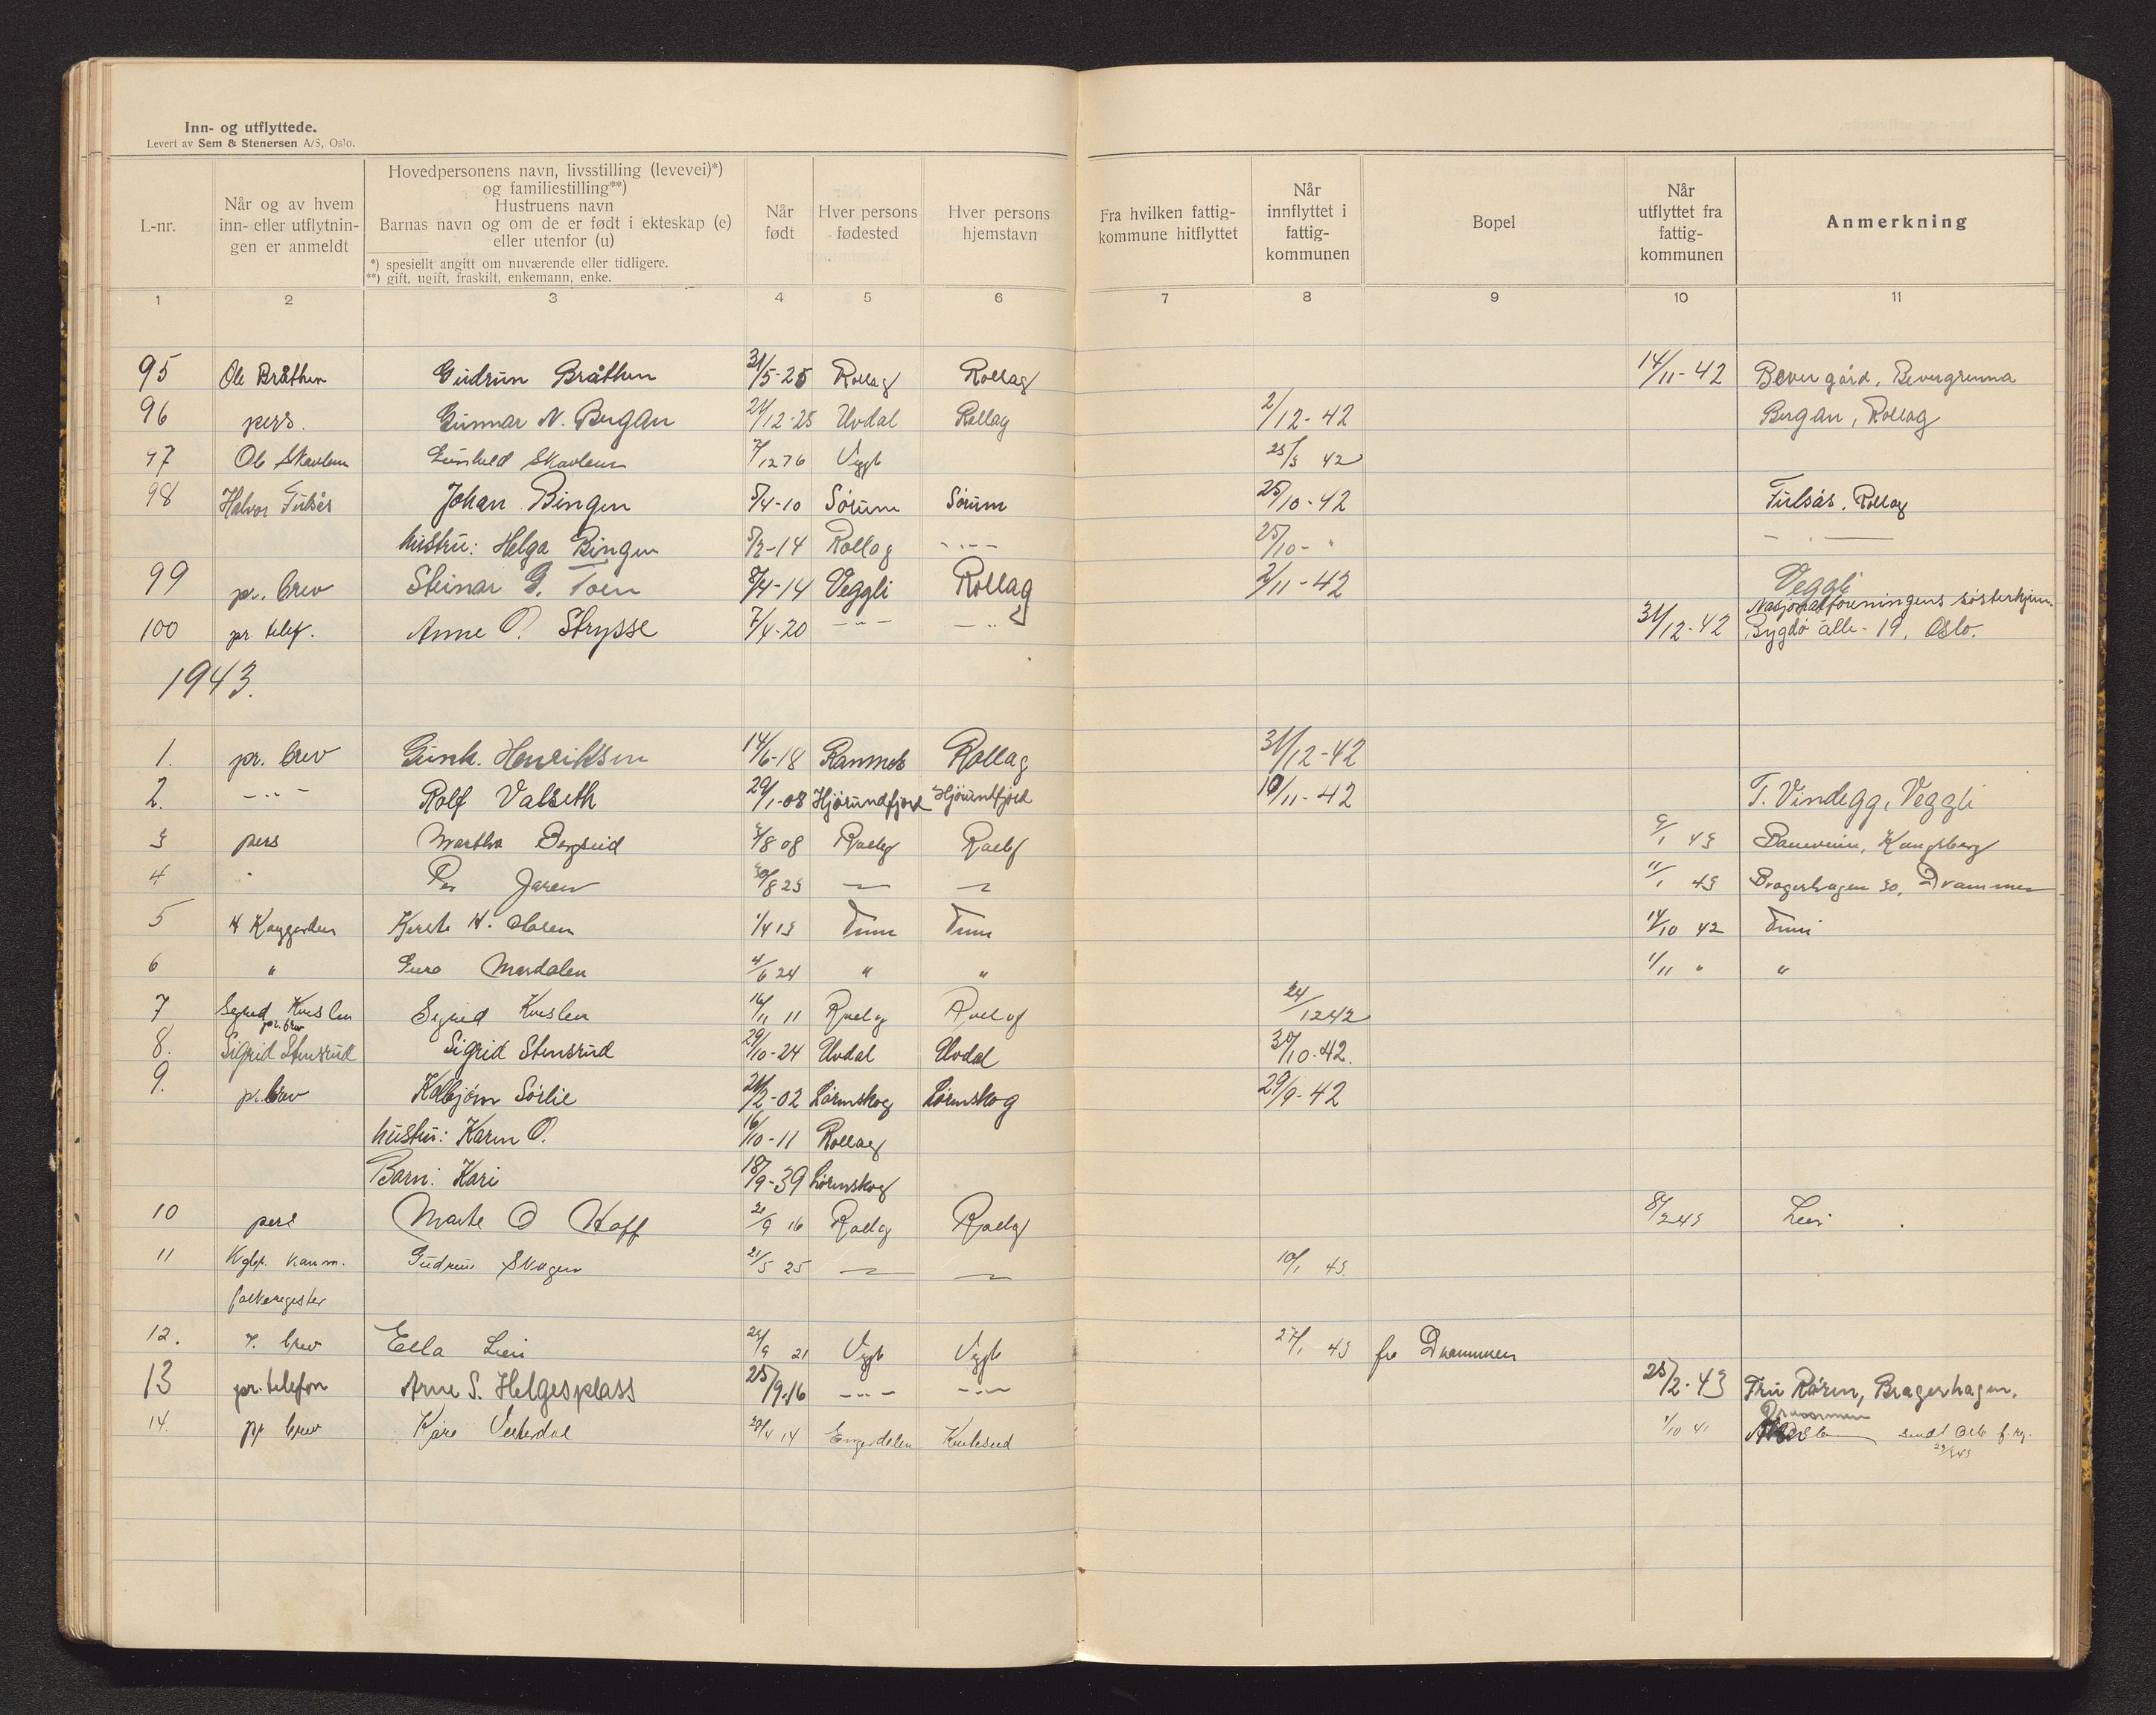 Inn- og utflyttede.
Levert av Sem & Stenersen A/S, Oslo.
L-nr.
Når og av hvem inn- eller utflytnin-gen er anmeldt
Hovedpersonens navn, livsstilling (levevei)*) og familiestilling**)
Hustruens navn
Barnas navn og om de er født i ekteskap (e) eller utenfor (u)
*) spesiellt angitt om nuværende eller tidligere.
**) gift, ugift, fraskilt, enkemann, enke.
Når født
Hver persons fødested
Hver persons hjemstavn
Fra hvilken fattig-kommune hitflyttet
Når innflyttet i fattig-kommunen
Bopel
Når utflyttet fra fattig-kommunen
Anmerkning
1 2 3 4 5 6 7 8 9 10 11
95 Ole Bråthen Gudrun Bråthen 31/5-25 Rollag Rollag 14/11-42 Bever gård, Bevergrenna
96 pers. Gunnar N. Bergan 21/12-25 Uvdal Rollag 2/12-42 Bergan, Rollag
97 Ole Skavlem Gunhild Skavlem 7/12 76 Veggli 25/3 42
98 Halvor Fulsås Johan Bingen 5/4-10 Sørum Sørum 25/10-42 Fulsås, Rollag
hustru: Helga Bingen 5/2-14 Rollag -..- 25/10- " -..-
99 pr. brev Steinar G. Toen 8/4-14 Veggli Rollag 2/11-42 Veggli
100 pr. telef. Anne O. Strysse 7/4-20 -..- -..- 31/12-42 Nasjonalforeningens søsterhjem. Bygdø allé - 19, Oslo.
1943.
1. pr. brev Gunh. Henriksen 14/6-18 Ramnes Rollag 31/12-42
2. -..- Rolf Valseth 29/1-08 Hjørundfjord Hjørundfjord 10/11-42 T. Vindegg, Veggli
3 pers Martha Bergsud 3/8 08 Rollag Rollag 9/1 43 Kongsberg
4 " Per Jaren 30/8 23 — — 11/1 43 Bragerhagen 30, Drammen
5 H Kaggerden H. 1/4 13 Tinn Tinn 14/10 42 Tinn
6 " Guro Mardalen 4/6 24 " " 1/11 " "
7 Sigrid Kveslen Sigrid Kveslen 16/11 11 Rollag Rollag 24/12 42
8. pr. brev Sigrid Stensrud Sigrid Stensrud 29/10-24 Uvdal Uvdal 30/10-42.
9. pr. brev Kolbjørn Sørlie 21/2-02 Lørenskog Lørenskog 29/9-42
hustru: Karen O. 16/10-11 Rollag
Barn: Kari 18/9-39 Lørenskog
10 pers Marte O Hoff 21/9 16 Rollag Rollag 8/2 43 Lier
11 Kgbg. komm. folkeregister Gudrun Skogen 21/5 25 — — 10/1 43
12. p. brev Ella Lien 24/9 21 Veggli Veggli 27/1 43 fra Drammen
13 pr. telefon Arne S. Helgesplass 25/9-16 -..- -..- 25/2-43 Fru Røren, Bragerhagen, Drammen
14. pr brev Kåre Vesterdal 20/4 14 Engerdalen 1/10 41 sendt Oslo f. reg.